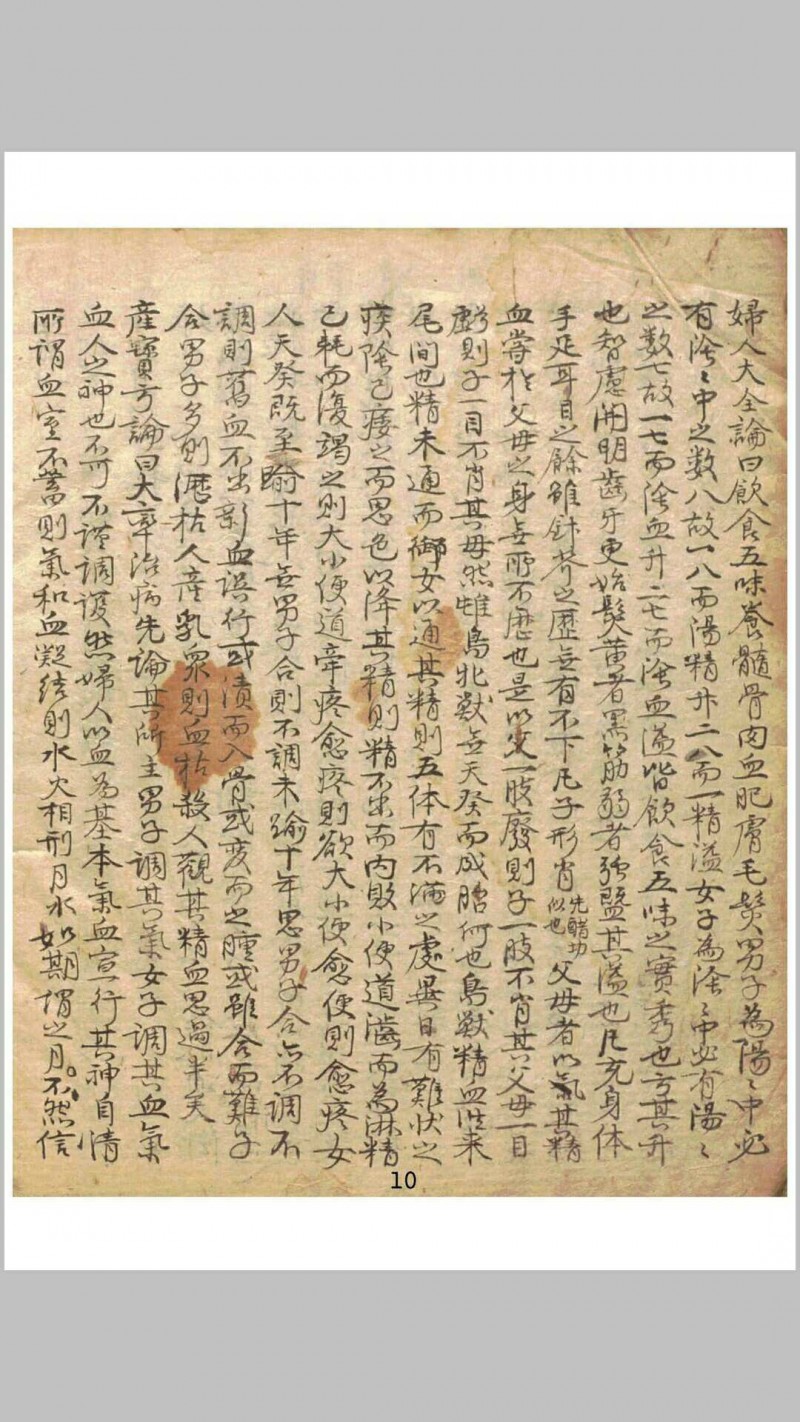 婦人大全論曰飲食五味養髓骨肉血肥膚毛髮男子為陽〻中必
有陰〻中之数八故一八而陽精升二八而一精溢女子為陰〻中必有陽〻
之数七故一七而陰血升二七而陰血溢皆飲食五味之實秀也方其升
也智慮開明齒牙更始髮黃者黑筋弱者强暨其溢也凡充身体
手足耳目之餘雖針芥之歷無有不下凡子形肖似也父母者以氣其精
血嘗於父母之身無所不歷也是以父一肢廢則子一肢不肖其父母一目
虧則子一目不肖其母然雌鳥牝獸無天癸而成胎何也鳥獸精血徃来
尾间也精未通而御女以通其精則五体有不滿之處異日有難状之
疾陰已痿之而思色以降其精則精不出而内敗小便道澁而為淋精
已耗而復竭之則大小便道牽疼愈疼則欲大小便愈便則愈疼女
人天癸既至踰十年無男子合則不調未踰十年思男子合亦不調不
調則舊血不出新血误行或漬而入骨或变而之腫或雖合而難子
合男子多則瀝枯人産乳衆則血枯殺人觀其精血思過半矣
産寶方論曰大率治病先論其所主男子調其氣女子調其血氣
血人之神也不可不謹調護然婦人以血為基本氣血宣行其神自清
所謂血室不蓄則氣和血凝结則水火相刑月水如期謂之月不然信
10